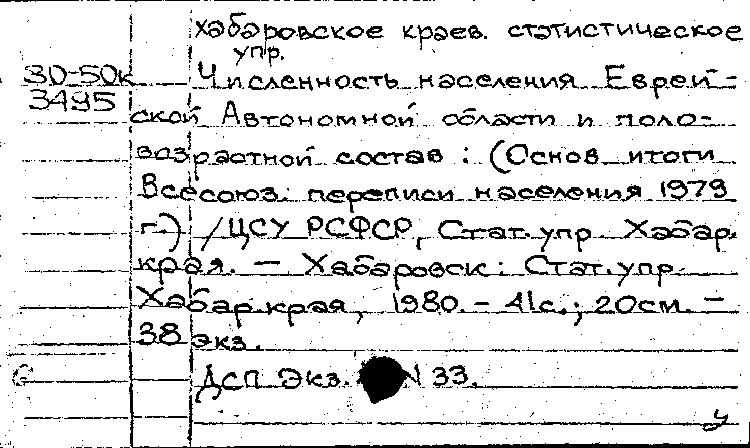 Хабаровское краев. статистическое
упр.
30-50к Численность населения Еврей-
3495
ской Автономной области и поло-
возрастной состав : (Основ. итоги
Всесоюз. переписи населения 1979
г.) /ЦСУ РСФСР, Стат. упр. Хабар.
края. — Хабаровск : Стат. упр.
Хабар. края, 1980. - 41с. ; 20см. —
38 экз.
ДСП Экз. N 33.
у